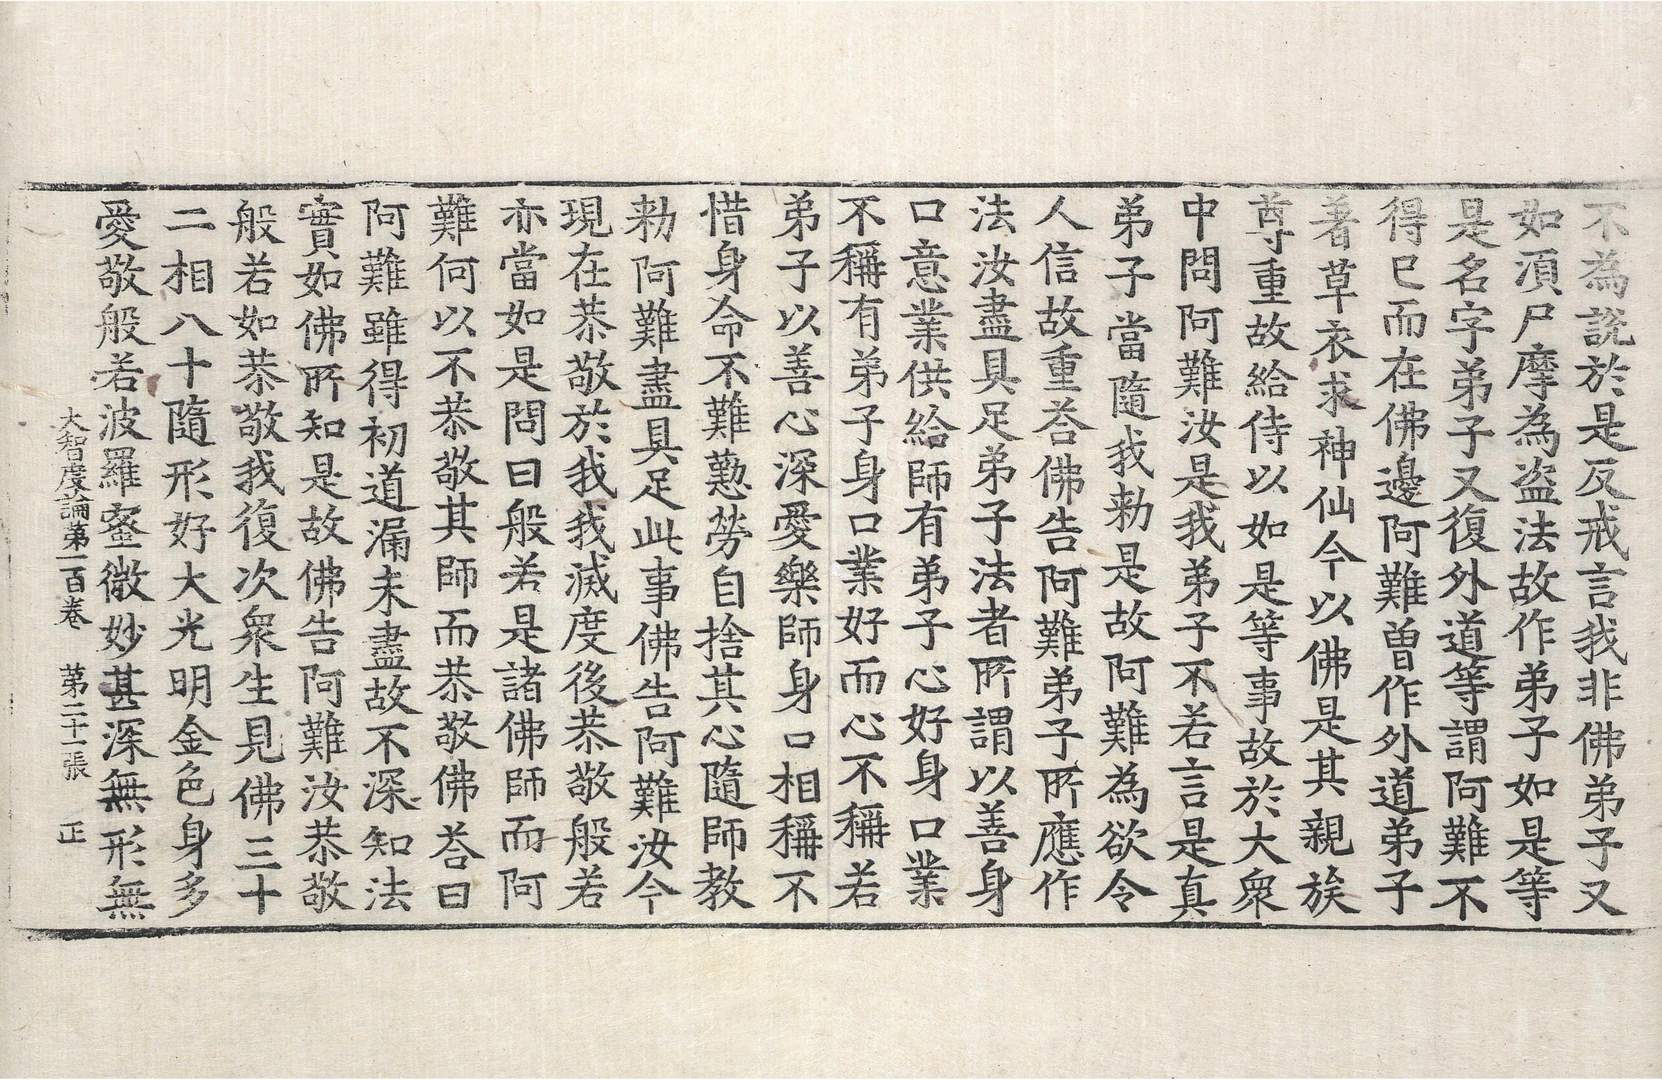 不為說於是反戒言我非佛弟子又
如湏尸摩為盗法故作弟子如是等
是名字弟子又復外道等謂阿難不
得已而在佛邊阿難曽作外道弟子
著草衣求神仙今以佛是其親族
尊重故給侍以如是等事故於大衆
中問阿難汝是我弟子不若言是真
弟子當隨我勑是故阿難為欲令
人信故重荅佛告阿難弟子所應作
法汝盡具足弟子法者所謂以善身
口意業供給師有弟子心好身口業
不稱有弟子身口業好而心不稱若
弟子以善心深愛樂師身口相稱不
惜身命不難懃勞自捨其心隨師教
勑阿難盡具足此事佛告阿難汝今
現在恭敬於我我滅度後恭敬般若
亦當如是問曰般若是諸佛師而阿
難何以不恭敬其師而恭敬佛荅曰
阿難雖得初道漏未盡故不深知法
實如佛所知是故佛告阿難汝恭敬
般若如恭敬我復次衆生見佛三十
二相八十隨形好大光明金色身多
愛敬般若波羅蜜微妙甚深無形無
大智度論第一百卷 第二十一張 正